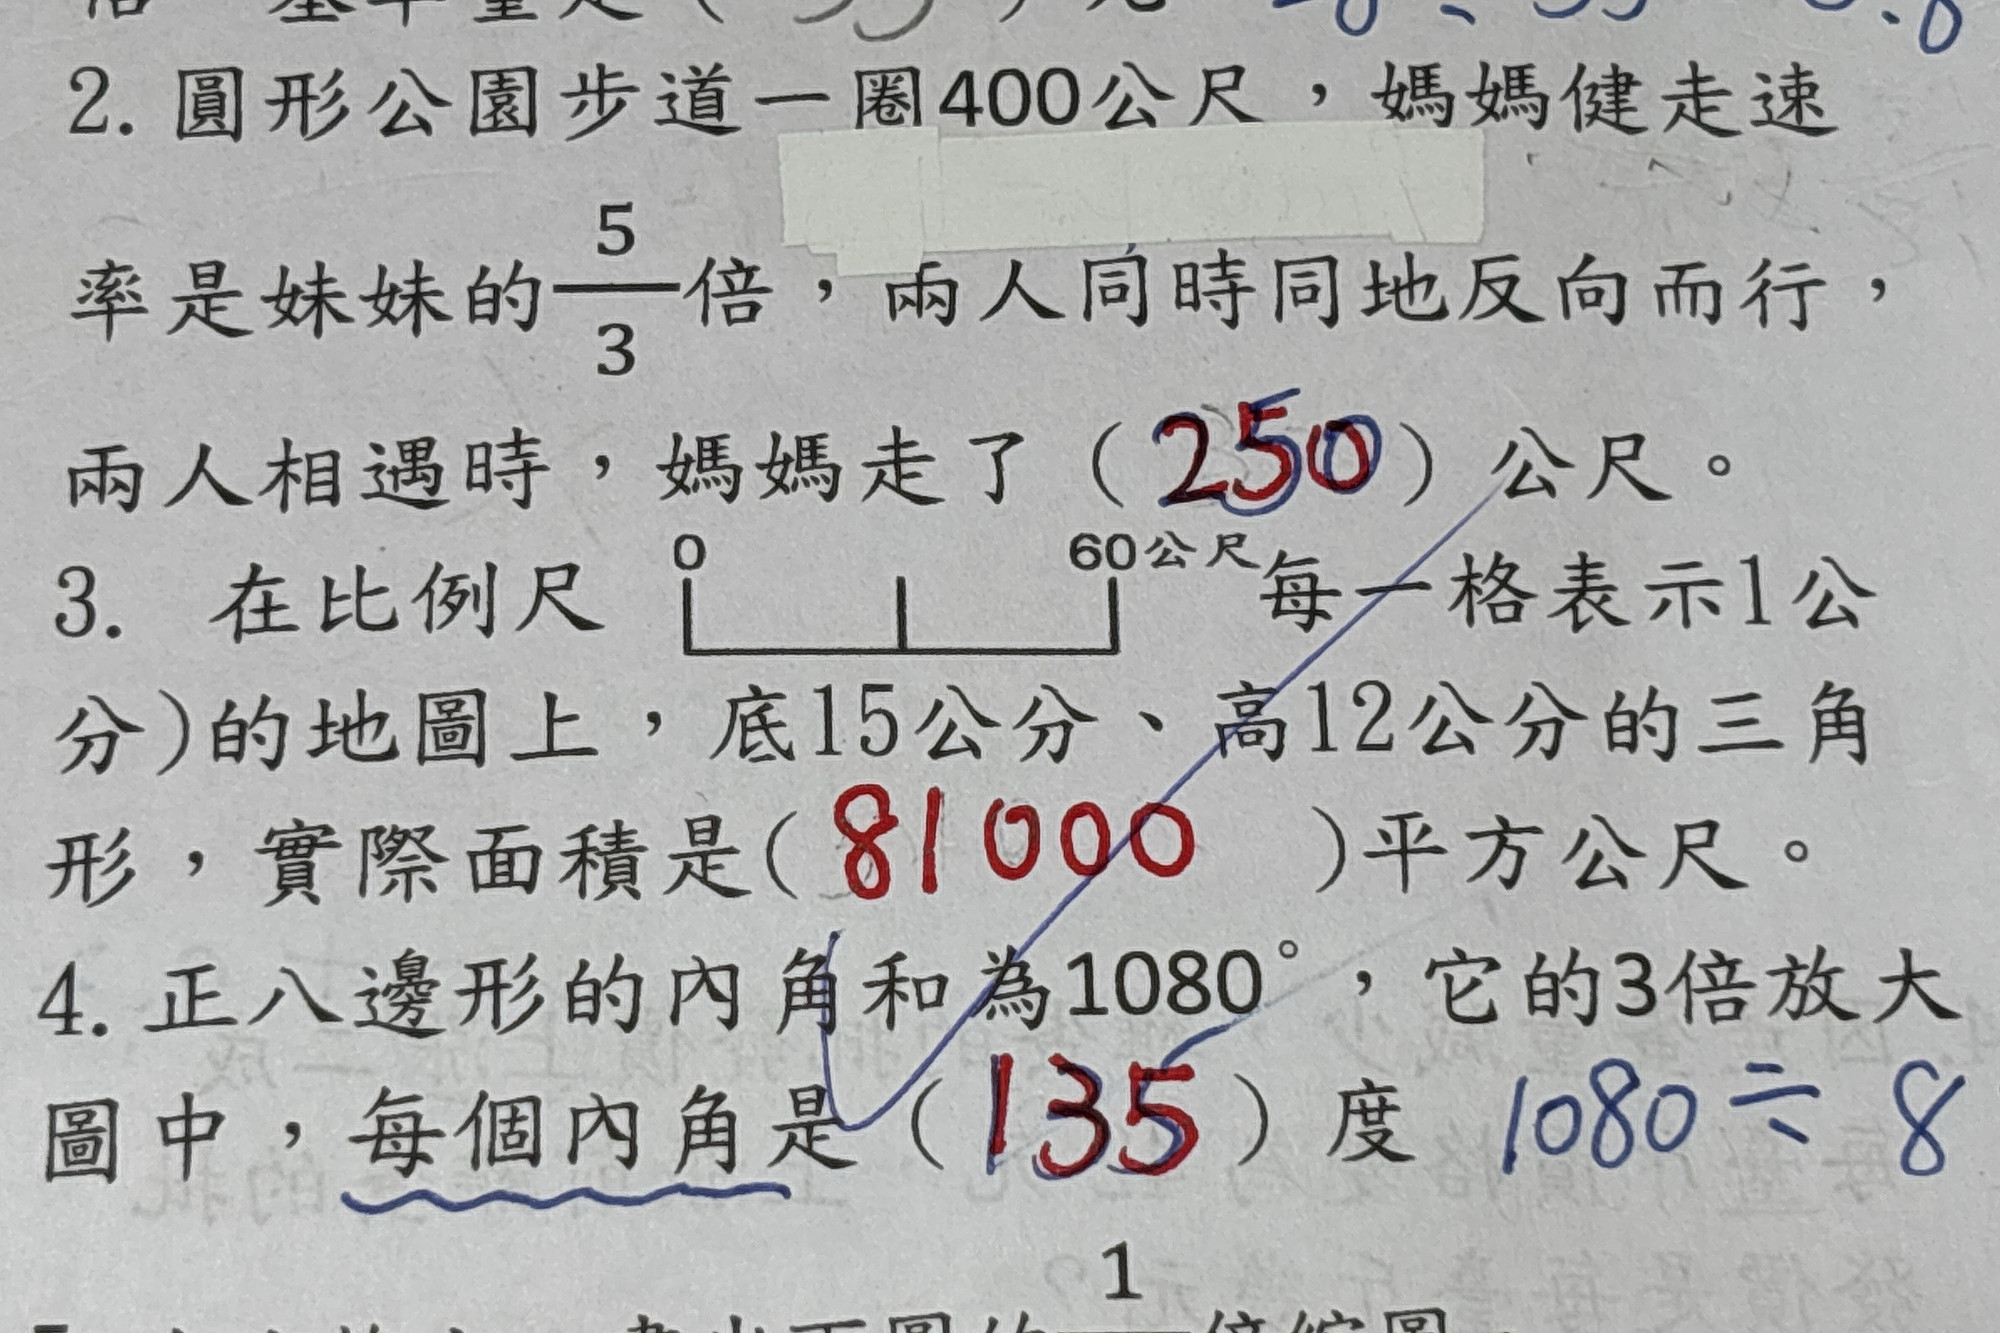 2. 圓形公園步道一圈400公尺，媽媽健走速
率是妹妹的5/3倍，兩人同時同地反向而行，
兩人相遇時，媽媽走了（250）公尺。
0 60公尺
3. 在比例尺 每一格表示1公
分)的地圖上，底15公分、高12公分的三角
形，實際面積是( 81000 )平方公尺。
4. 正八邊形的內角和為1080°，它的3倍放大
圖中，每個內角是（135）度 1080÷8